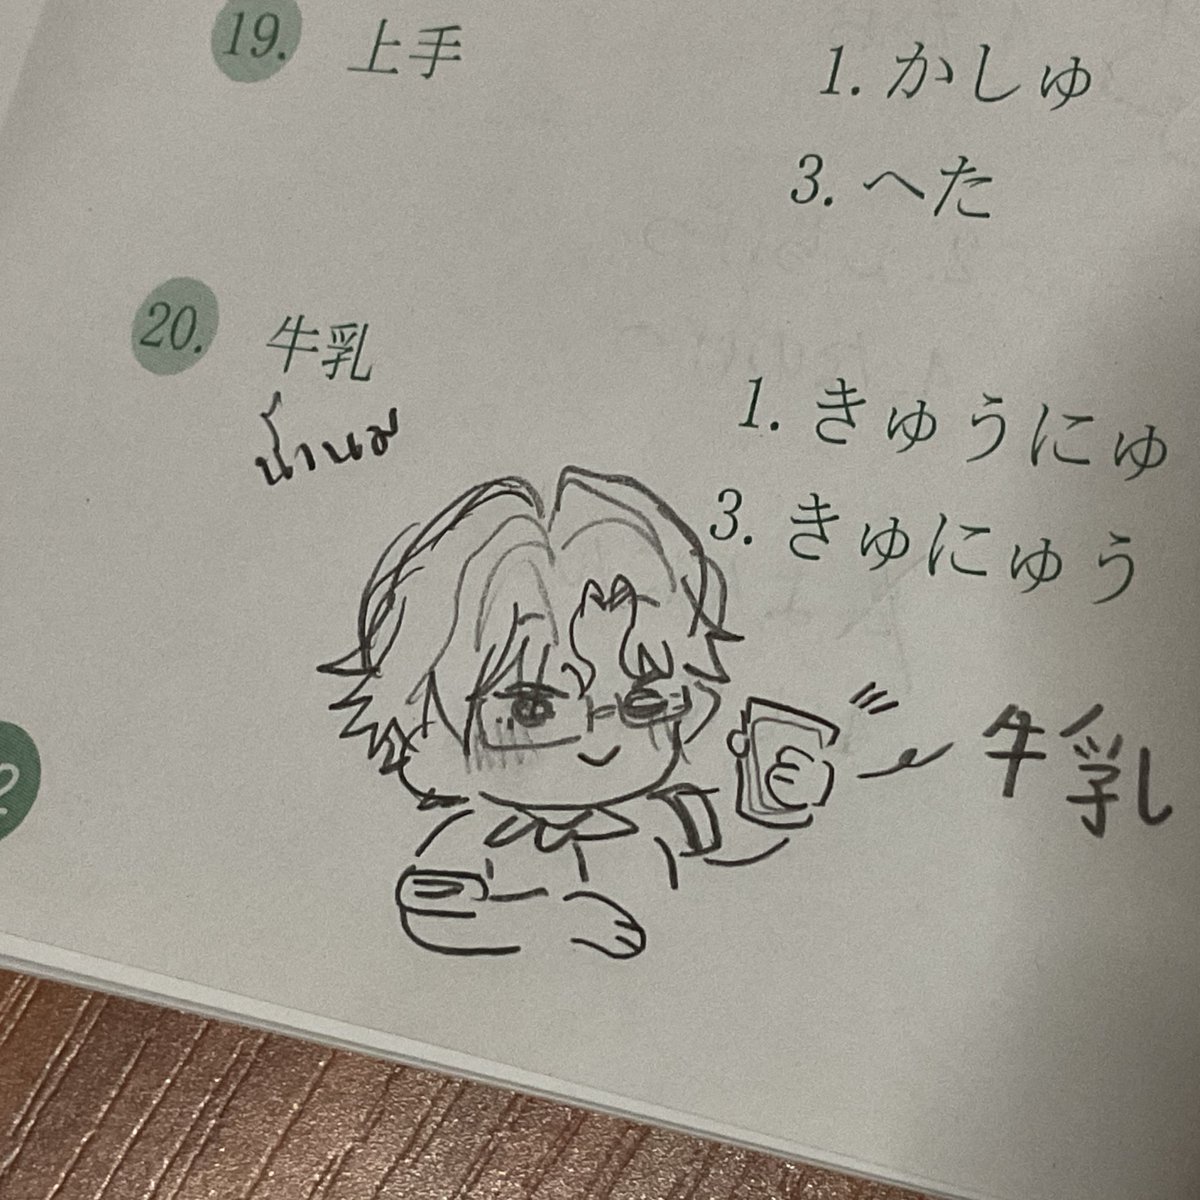 19. 上手
1. かしゅ
3. へた
20. 牛乳
น้ำนม
1. きゅうにゅ
3. きゅにゅう
牛乳